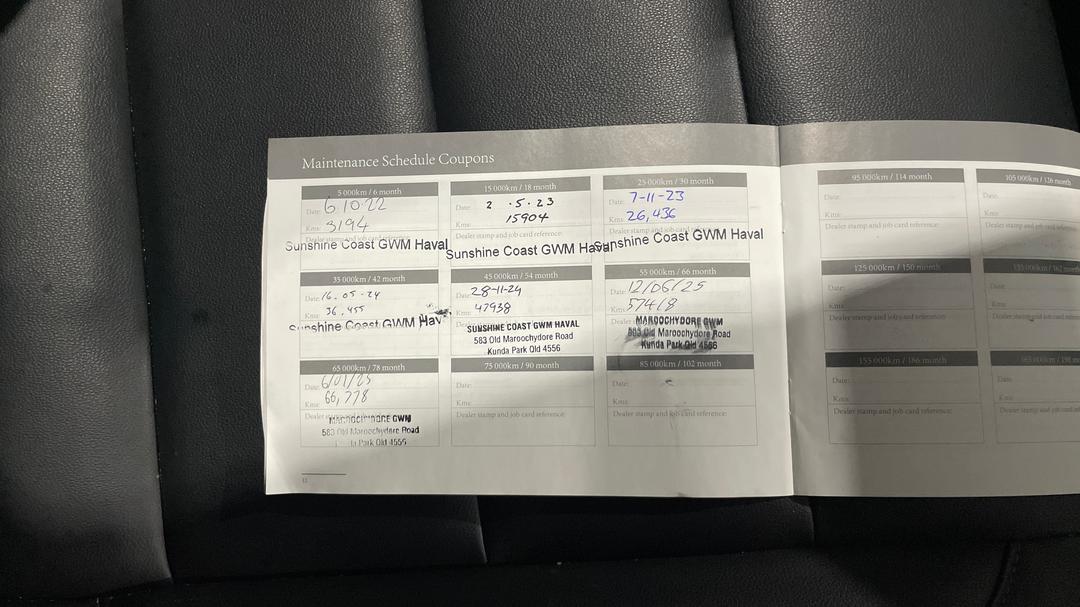 Maintenance Schedule Coupons
5 000km / 6 month
Date: 6.10.22
Kms: 3194
Dealer stamp and job card reference:
Sunshine Coast GWM Haval
15 000km / 18 month
Date: 2 .5.23
Kms: 15904
Sunshine Coast GWM Haval
25 000km / 30 month
Date: 7-11-23
Kms: 26,436
Dealer stamp and job card reference:
Sunshine Coast GWM Haval
35 000km / 42 month
Date: 16.05.24
Kms: 36,455
Sunshine Coast GWM Haval
45 000km / 54 month
Date: 28-11-24
Kms: 47938
SUNSHINE COAST GWM HAVAL
583 Old Maroochydore Road
Kunda Park Qld 4556
55 000km / 66 month
Date: 12/06/25
Kms: 57418
MAROOCHYDORE GWM
583 Old Maroochydore Road
Kunda Park Qld 4556
65 000km / 78 month
Date:
Kms: 66,778
MAROOCHYDORE GWM
583 Old Maroochydore Road
Kunda Park Qld 4556
75 000km / 90 month
Date:
Kms:
Dealer stamp and job card reference:
85 000km / 102 month
Date:
Kms:
Dealer stamp and job card reference:
95 000km / 114 month
Date:
Kms:
Dealer stamp and job card reference:
105 000km / 126 month
Date:
Kms:
Dealer stamp and job card
125 000km / 150 month
Date:
Kms:
Dealer stamp and job card reference:
135 000km / 162 month
Date:
Kms:
Dealer stamp and job card
155 000km / 186 month
Date:
Kms:
Dealer stamp and job card reference:
165 000km / 198
Date:
Kms:
Dealer stamp and job card